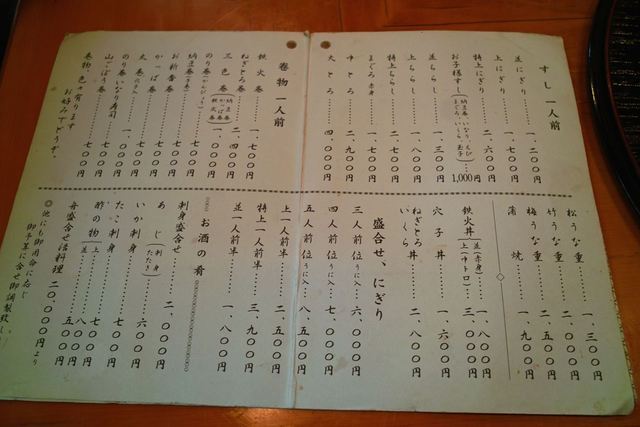 すし 一人前
並にぎり……一、二〇〇円
上にぎり……一、七〇〇円
特上にぎり……二、六〇〇円
お子様すし(納豆巻・いなり・えび まぐろ・いくら・玉子) 1,000円
並ちらし……一、三〇〇円
上ちらし……一、八〇〇円
特上ちらし……二、七〇〇円
まぐろ 赤身……一、七〇〇円
中とろ……二、九〇〇円
大とろ……四、〇〇〇円
巻物 一人前
鉄火巻……一、七〇〇円
ねぎとろ巻……二、四〇〇円
三色巻(納豆巻 かっぱ巻 鉄火巻)一、〇〇〇円
のり巻(かんぴょう)……七〇〇円
納豆巻……七〇〇円
お新香巻……七〇〇円
かっぱ巻……七〇〇円
太巻……一、〇〇〇円
のり巻いなり寿司……七〇〇円
山ごぼう巻……七〇〇円
巻物、色々有ります
お好みでどうぞ。
松うな重……一、三〇〇円
竹うな重……二、〇〇〇円
梅うな重……二、五〇〇円
蒲焼……一、九〇〇円
鉄火丼 並(赤身)……一、八〇〇円
上(中トロ)……三、〇〇〇円
穴子丼……一、六〇〇円
ねぎとろ丼……二、八〇〇円
いくら
盛合せ、にぎり
三人前位 うに入……六、〇〇〇円
四人前位 うに入……七、〇〇〇円
五人前位 うに入……八、五〇〇円
上一人前半……二、五〇〇円
特上一人前半……三、九〇〇円
並一人前半……一、八〇〇円
お酒の肴
刺身盛合せ……二、〇〇〇円
あじ(刺身 たたき)……七〇〇円
いか刺身……六〇〇円
たこ刺身……七〇〇円
酢の物(上)……七〇〇円
(並)……五〇〇円
舟盛合せ活料理 二〇、〇〇〇円より
◎他にも御用命に応じ
御予算に合せ御調製致し